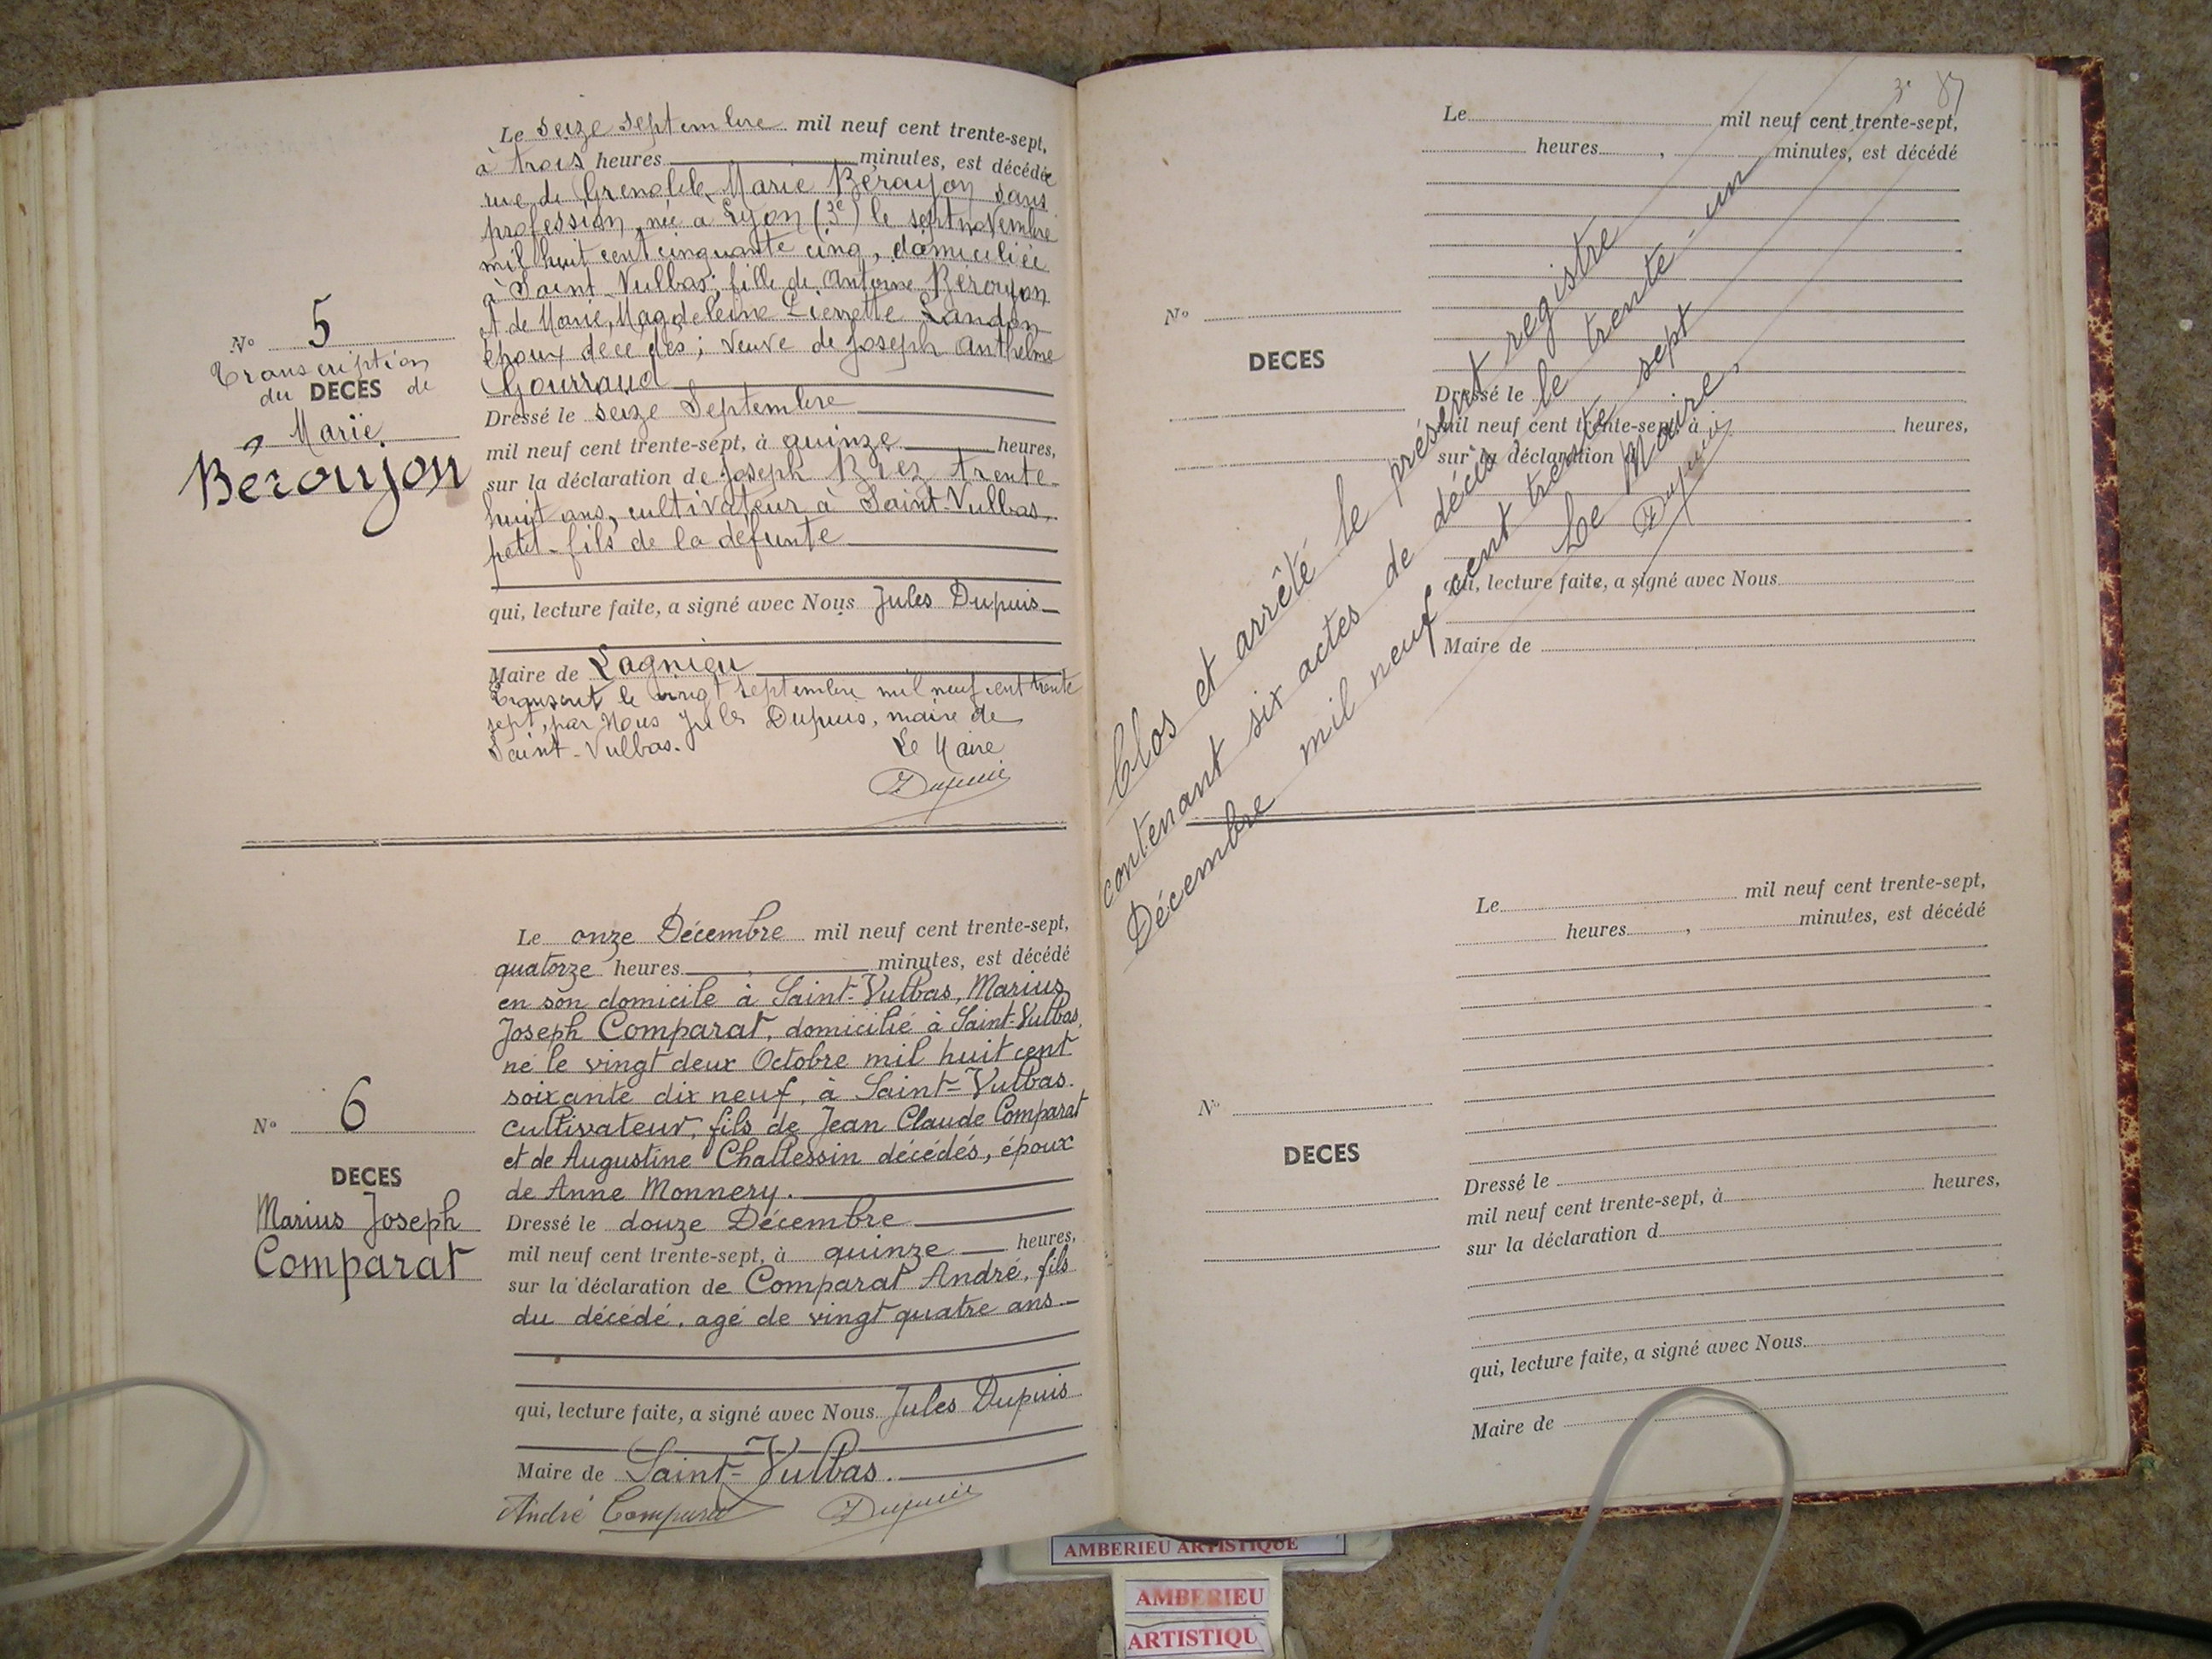 Le seize septembre mil neuf cent trente-sept,
à trois heures minutes, est décédée
rue de Grenoble Marie Béroujon sans
profession, née à Lyon (3e) le sept novembre
mil huit cent cinquante cinq, domiciliée
à Saint-Vulbas; fille de Antoine Béroujon
et de Marie, Magdeleine Pierrette Landon
époux décédés; veuve de Joseph Anthelme
Gourraud
Dressé le seize Septembre
mil neuf cent trente-sept, à quinze heures,
sur la déclaration de Joseph Briez trente-
huit ans, cultivateur à Saint-Vulbas,
petit-fils de la défunte
qui, lecture faite, a signé avec Nous Jules Dupuis
Maire de Lagnieu
Transcrit le vingt septembre mil neuf cent trente
sept, par Nous Jules Dupuis, maire de
Saint-Vulbas. Le Maire
Dupuis
No 5
Transcription
du DECES de
Marie
Béroujon
Le onze Décembre mil neuf cent trente-sept,
quatorze heures minutes, est décédé
en son domicile à Saint-Vulbas, Marius
Joseph Comparat, domicilié à Saint-Vulbas,
né le vingt deux Octobre mil huit cent
soixante dix neuf, à Saint-Vulbas.
cultivateur, fils de Jean Claude Comparat
et de Augustine Challessin décédés, époux
de Anne Monnery.
Dressé le douze Décembre
mil neuf cent trente-sept, à quinze heures,
sur la déclaration de Comparat André, fils
du décédé, agé de vingt quatre ans
qui, lecture faite, a signé avec Nous Jules Dupuis
Maire de Saint-Vulbas.
André Comparat Dupuis
No 6
DECES
Marius Joseph
Comparat
87
Le mil neuf cent trente-sept,
heures, minutes, est décédé
No
DECES
Dressé le
mil neuf cent trente-sept, à heures,
sur la déclaration d
qui, lecture faite, a signé avec Nous
Maire de
Clos et arrêté le présent registre
contenant six actes de décès, le trente-un
Décembre mil neuf cent trente sept
Le Maire,
Dupuis
Le mil neuf cent trente-sept,
heures, minutes, est décédé
No
DECES
Dressé le
mil neuf cent trente-sept, à heures,
sur la déclaration d
qui, lecture faite, a signé avec Nous
Maire de
AMBERIEU ARTISTIQUE
AMBERIEU
ARTISTIQU